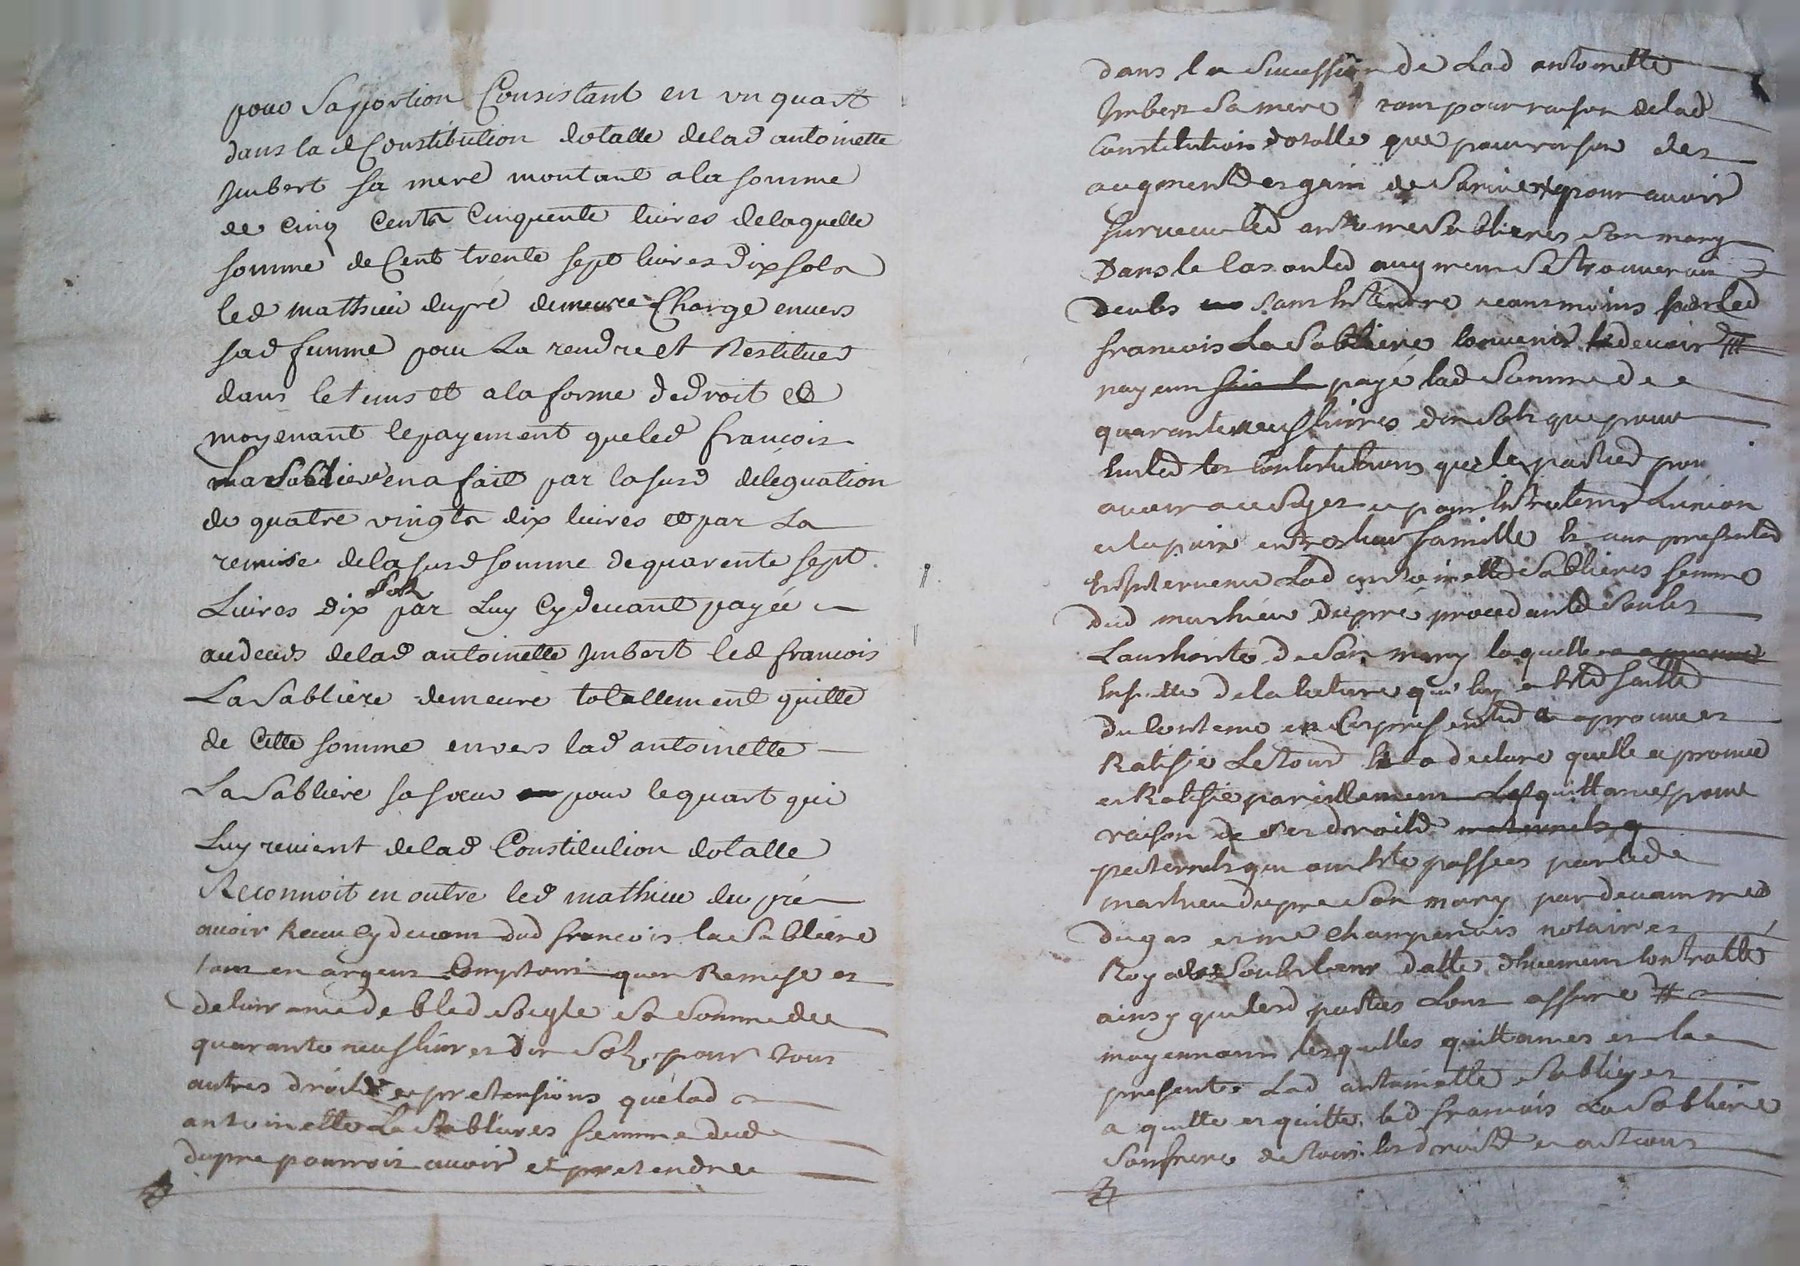 pour sa portion Consistant en un quart
dans la d Constitution dotalle de lad antoinette
Imbert sa mere montant a la somme
de cinq Cents Cinquente livres de laquelle
somme de Cent trente sept livres dix sols
led mathieu dupré demeure Charge envers
sad femme pour La rendre et Restituer
dans le tems et a la forme de droit et
moyenant le payement que led francois
La Sabliere en a fait par la susd déléguation
de quatre vingts dix livres et par La
remise de la susd somme de quarente sept
Livres dix sols par Luy Cy devant payée
audeuds de lad antoinette Imbert led francois
La Sabliere demeure totallement quitte
de Cette somme envers lad antoinette
La Sabliere sa sœur pour le quart qui
Luy revient de lad Constitution dotalle
Reconnoit en outre led mathieu du pré
avoir Receu cy devant dud francois la Sabliere
tant en argent Comptant quen Remise et
delivrance de bled seigle la somme de
quarante neuf livres dix sols pour tous
autres droits et pretensions que lad
antoinette La Sablieres femme dud
dupre pourroit avoir et pretendre
dans la Succession de Lad antoinette
Imbert sa mere tant pour raison de lad
Constitution dotalle que pour raison des
augment et gain de survie pour avoir
survecu led antoine Sablieres son mary
Dans le Cas ou led augment se trouveroit
deubs sans neanmoins par led
francois La Sabliere convenir le devoir #
payé lad Somme de
quarante neuf livres dix sols que pour
les Contestations que les parties pou
avoir a ce sujet et pour entretenir L'union
et la paix entre leur famille
Intervenue Lad antoinette Sablieres femme
dud mathieu Dupré procedant de
L'authorité de son mary laquelle
de la lecture qui luy a été faitte
du Contenu en Ces presentes a approuver
Ratifié Le tout et a declare quelle approuve
et Ratifie pareillement Les quittances pour
raison de ses droits maternels
paternels qui ont été passées par led
mathieu dupre son mary par devant me
dugas et me Champenois notaires
Royaux datte d'huement Controllé
ainsy que lesd parties L'ont assuré #
moyennant lesquelles quittances et la
presente Lad antoinette Sablieres
a quitte et quitte led francois La Sabliere
son frere de tous les droits et actions